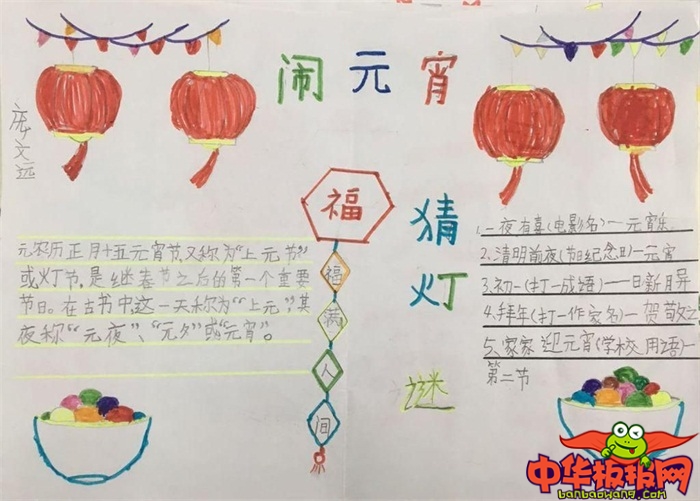 闹元宵
庞文远
农历正月十五元宵节又称为“上元节”
或灯节,是继春节之后的第一个重要
节日。在古书中,这一天称为“上元”,其
夜称“元夜”、“元夕”或“元宵”。
福
福
满
人
间
猜
灯
谜
1.一夜有喜(电影名)一元宵乐
2.清明前夜(节日纪念日)一元宵
3.初一(打一成语)一日新月异
4.拜年(打一作家名)一贺敬之
5.家家迎元宵(学校用语)一
第二节
中华板报网
banbaowang.com